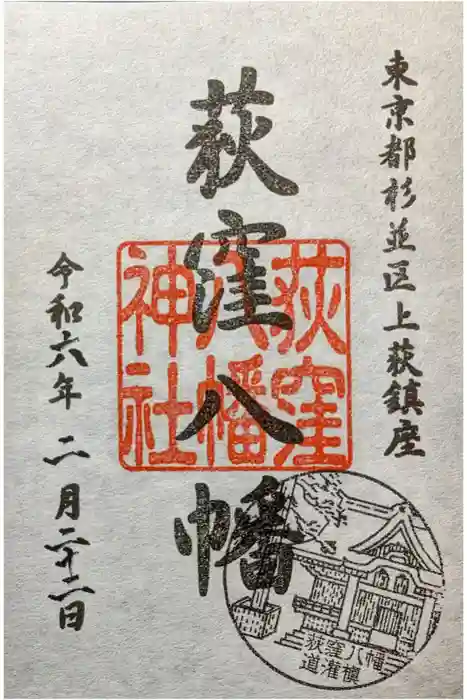 東京都杉並区上荻鎮座
荻窪八幡
荻窪
八幡
神社
令和六年 二月二十二日
荻窪八幡
道灌槇